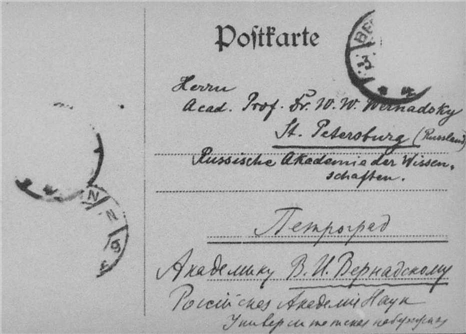 Postkarte
Herrn
Acad. Prof. Dr. W. W. Wernadsky
St. Petersburg (Russland)
Russische Akademie der Wissen-
schaften.
Петроград
Академику В. И. Вернадскому
Российская Академия Наук
Университетская набережная